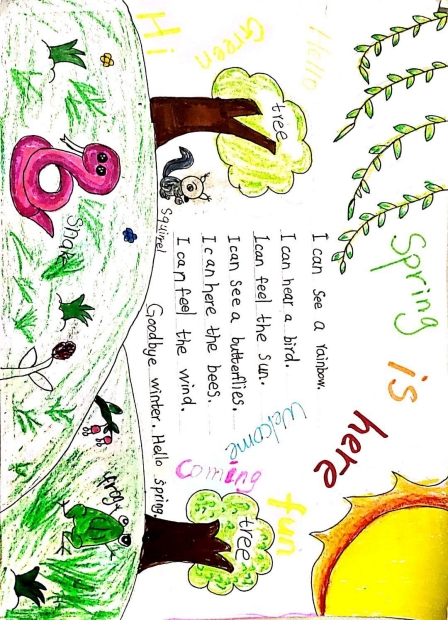 Hello
Spring is here
Green
Hi
tree
I can see a rainbow.
I can hear a bird.
I can feel the sun.
I can see a butterflies.
I can here the bees.
I can feel the wind.
Goodbye winter. Hello spring.
Welcome
Coming
fun
tree
squirrel
snake
frog